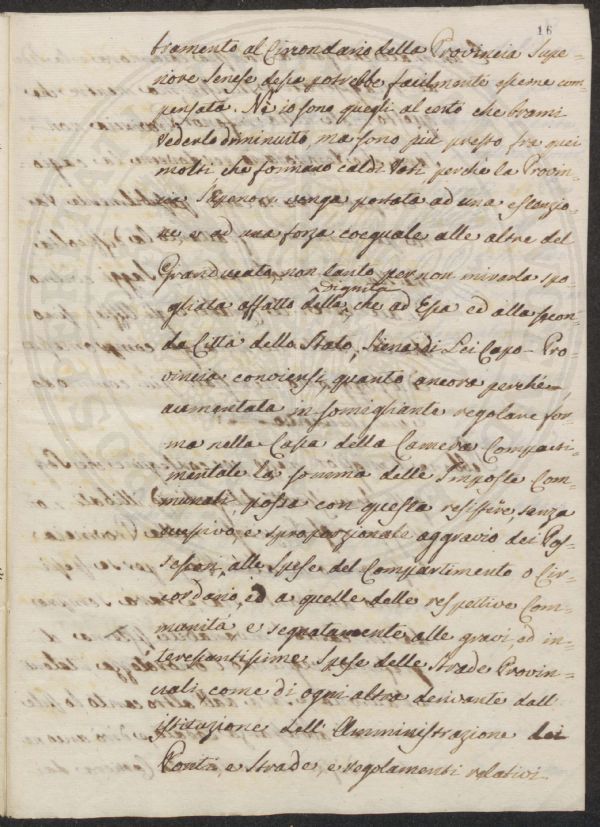 16
bramento al Circondario della Provincia Supe-
riore Senese desa potrebbe facilmente esserne com-
pensata. Nè io sono quegli al certo che brami
vederlo diminuito, ma sono più presto fra quei
molti che formano caldi Voti perchè la Provin-
cia Superiore venga portata ad una estenzio-
ne e ad una forza coeguale alle altre del
Granducato, non tanto per non mirarla spo-
gliata affatto della dignità, che ad Essa ed alla secon-
da Città dello Stato, Siena di Lei Capo-Pro-
vincia conviensi, quanto ancora perchè
aumentata in somigliante regolare for-
ma nella Cassa della Camera Comparti-
mentale la somma delle Imposte Com-
munali, possa con questa resistere, senza
eccessivo e sproporzionale aggravio dei Pos-
sessori, alle Spese del Compartimento o Cir-
cordario, ed a quelle delle respettive Com-
munità e segnatamente alle gravi, ed in-
teressantissime Spese delle Strade Provin-
ciali come di ogni altra derivante dall'
istituzione dell'Amministrazione dei
Ponti, e Strade, e regolamenti relativi.